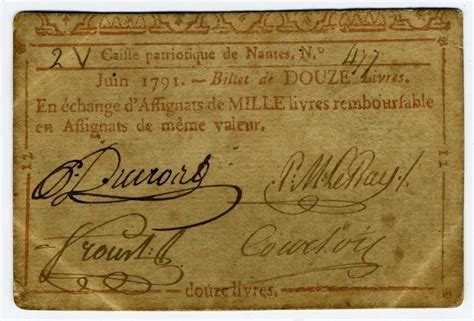 2 V Caisse patriotique de Nantes, N.° 477
Juin 1791. — Billet de DOUZE Livres.
En échange d'Assignats de MILLE livres remboursable
en Assignats de même valeur.
12 12
P. M. LeRay
Courtois
douze livres.